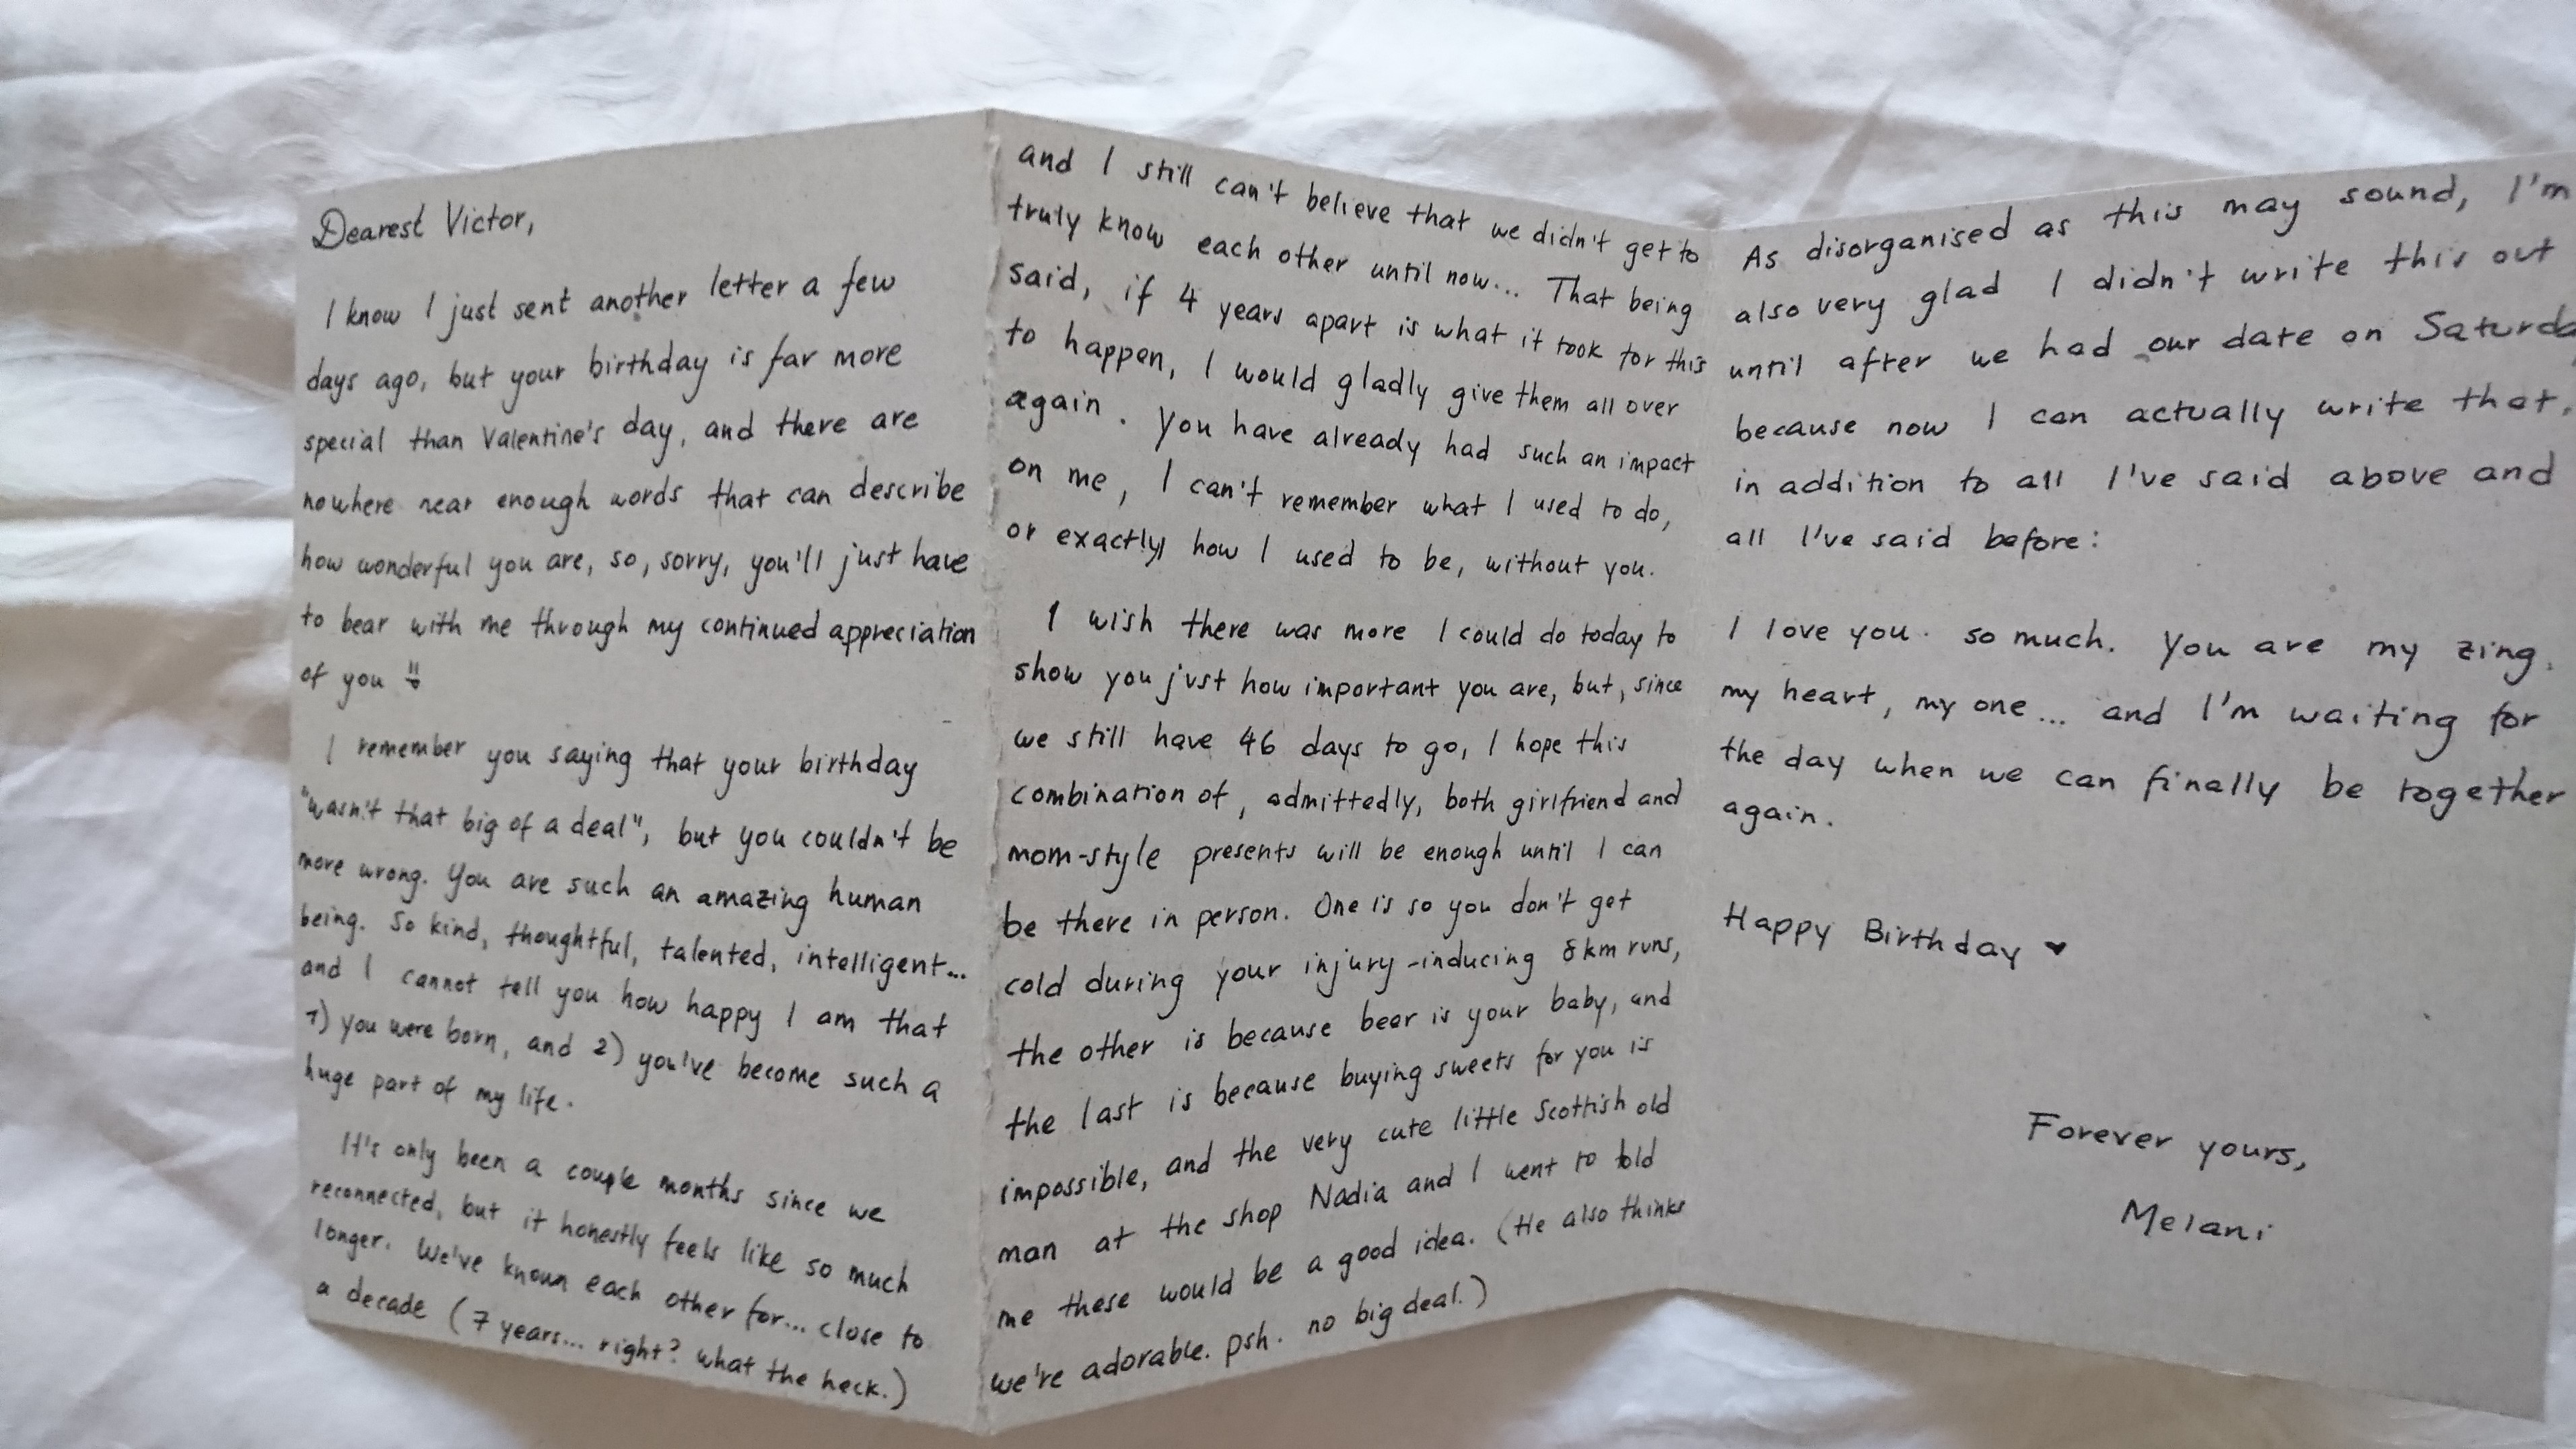 Dearest Victor,
I know I just sent another letter a few
days ago, but your birthday is far more
special than Valentine's day, and there are
nowhere near enough words that can describe
how wonderful you are, so, sorry, you'll just have
to bear with me through my continued appreciation
of you
I remember you saying that your birthday
"wasn't that big of a deal", but you couldn't be
more wrong. You are such an amazing human
being. So kind, thoughtful, talented, intelligent...
and I cannot tell you how happy I am that
1) you were born, and 2) you've become such a
huge part of my life.
It's only been a couple months since we
reconnected, but it honestly feels like so much
longer. We've known each other for... close to
a decade (7 years... right? what the heck.)
and I still can't believe that we didn't get to
truly know each other until now... That being
said, if 4 years apart is what it took for this
to happen, I would gladly give them all over
again. You have already had such an impact
on me, I can't remember what I used to do,
or exactly how I used to be, without you.
I wish there was more I could do today to
show you just how important you are, but, since
we still have 46 days to go, I hope this
combination of, admittedly, both girlfriend and
mom-style presents will be enough until I can
be there in person. One is so you don't get
cold during your injury-inducing 8km runs,
the other is because bear is your baby, and
the last is because buying sweets for you is
impossible, and the very cute little Scottish old
man at the shop Nadia and I went to told
me these would be a good idea. (He also thinks
we're adorable. psh. no big deal.)
As disorganised as this may sound, I'm
also very glad I didn't write this out
until after we had our date on Saturda
because now I can actually write that,
in addition to all I've said above and
all I've said before:
I love you. so much. You are my zing,
my heart, my one... and I'm waiting for
the day when we can finally be together
again.
Happy Birthday ♥
Forever yours,
Melani